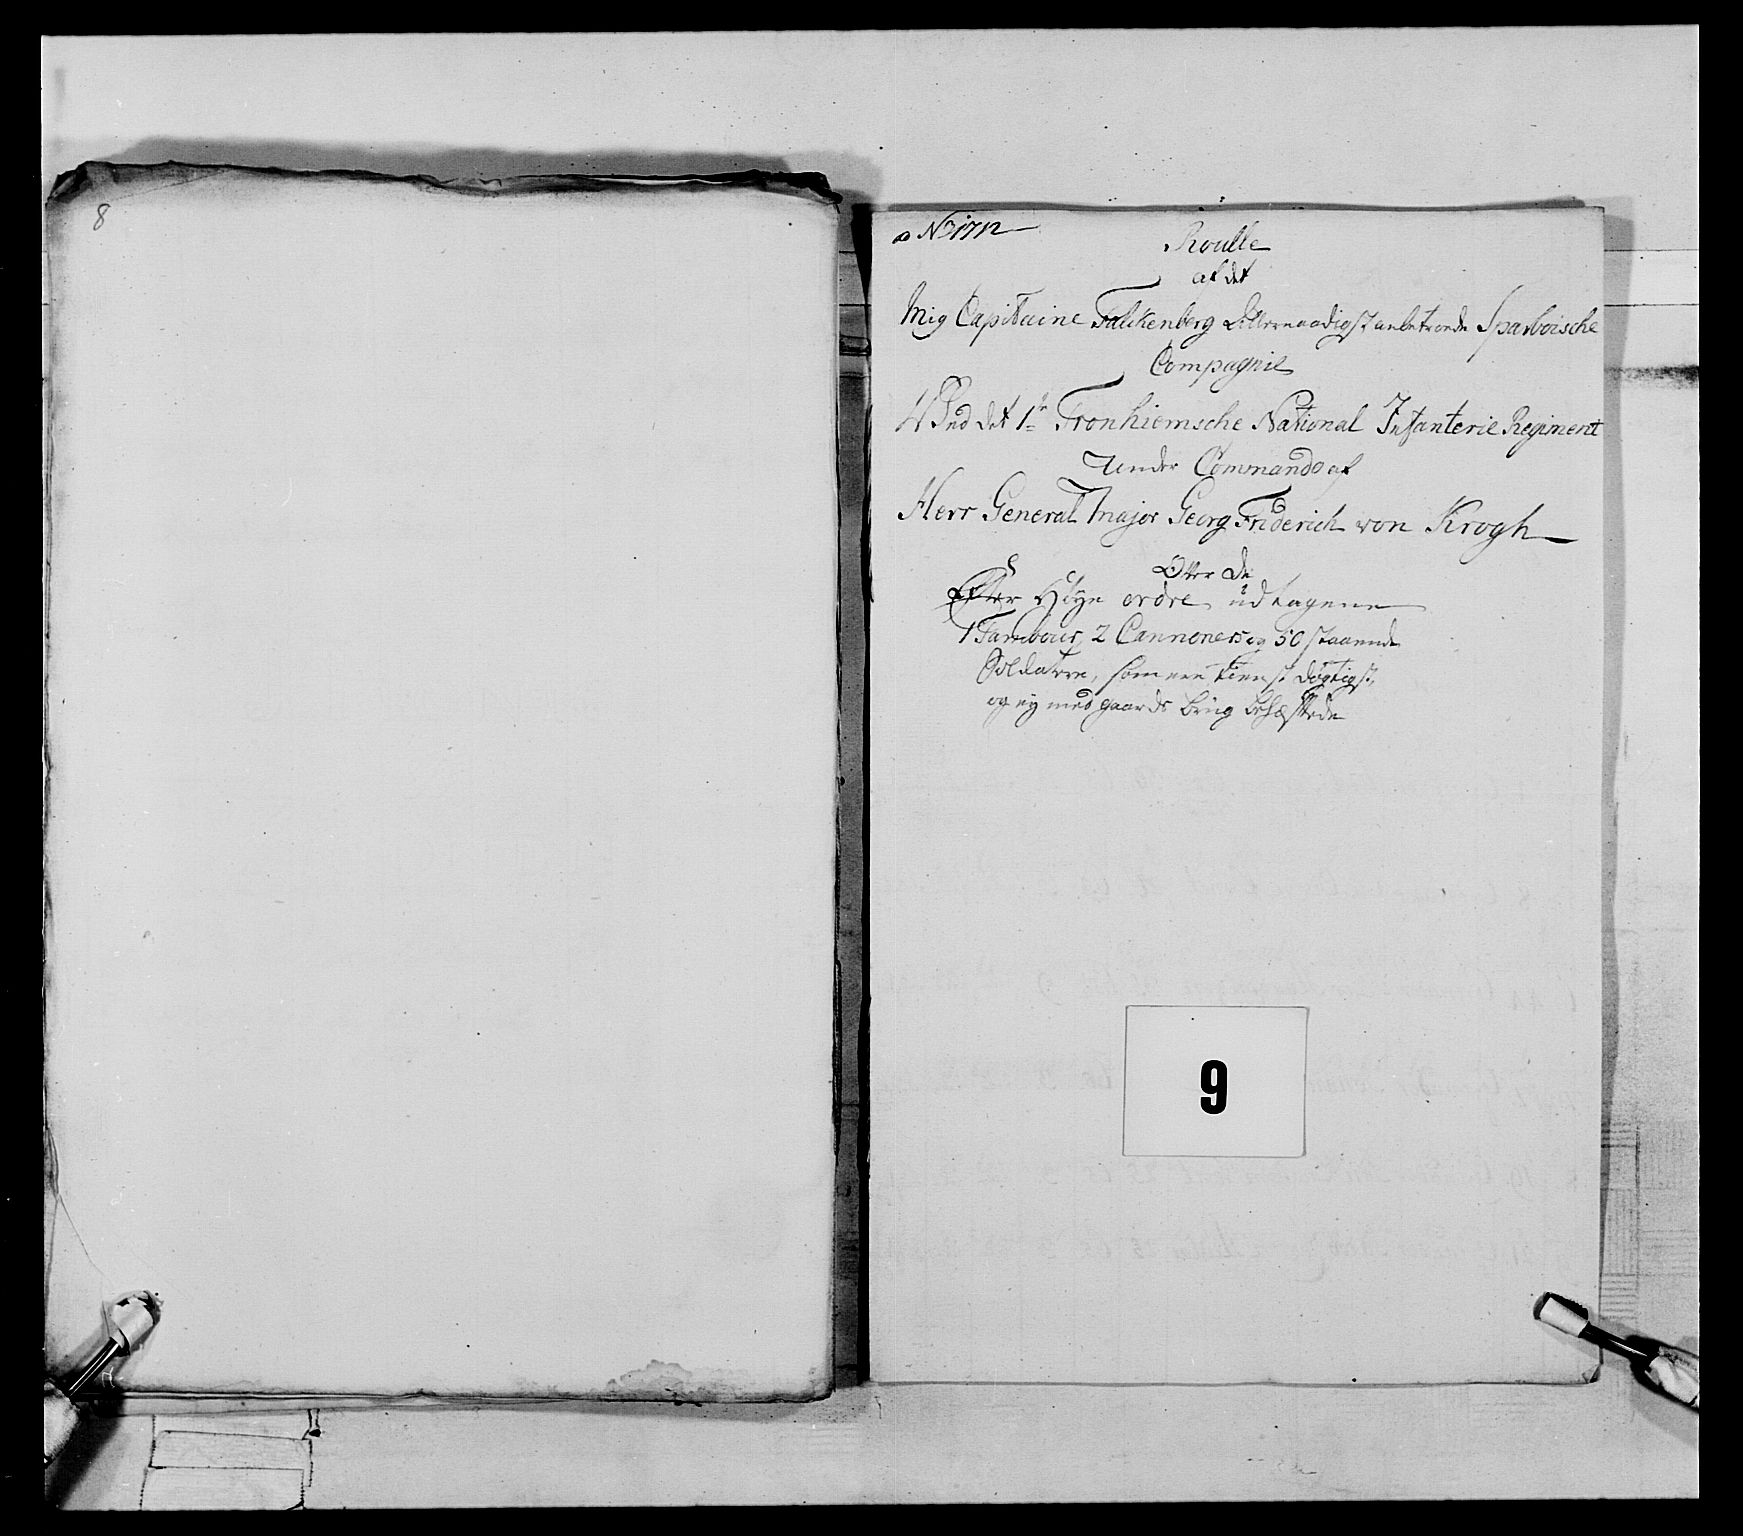 8
No 1712
Roulle
af det
Mig Capitaine Falckenberg allernaadigst anbetroede Sparboische
Compagnie
Ved det 1te Tronhiemsche National Infanterie Regiment
Under Commando af
Herr General Major Georg Friderich von Krogh
Over de
Efter Høye ordre udtagene
1 Tambour, 2 Cannoners og 50 staaende
Soldatere, som ere tienst dygtigst,
og ey med gaards brug behæftede
9